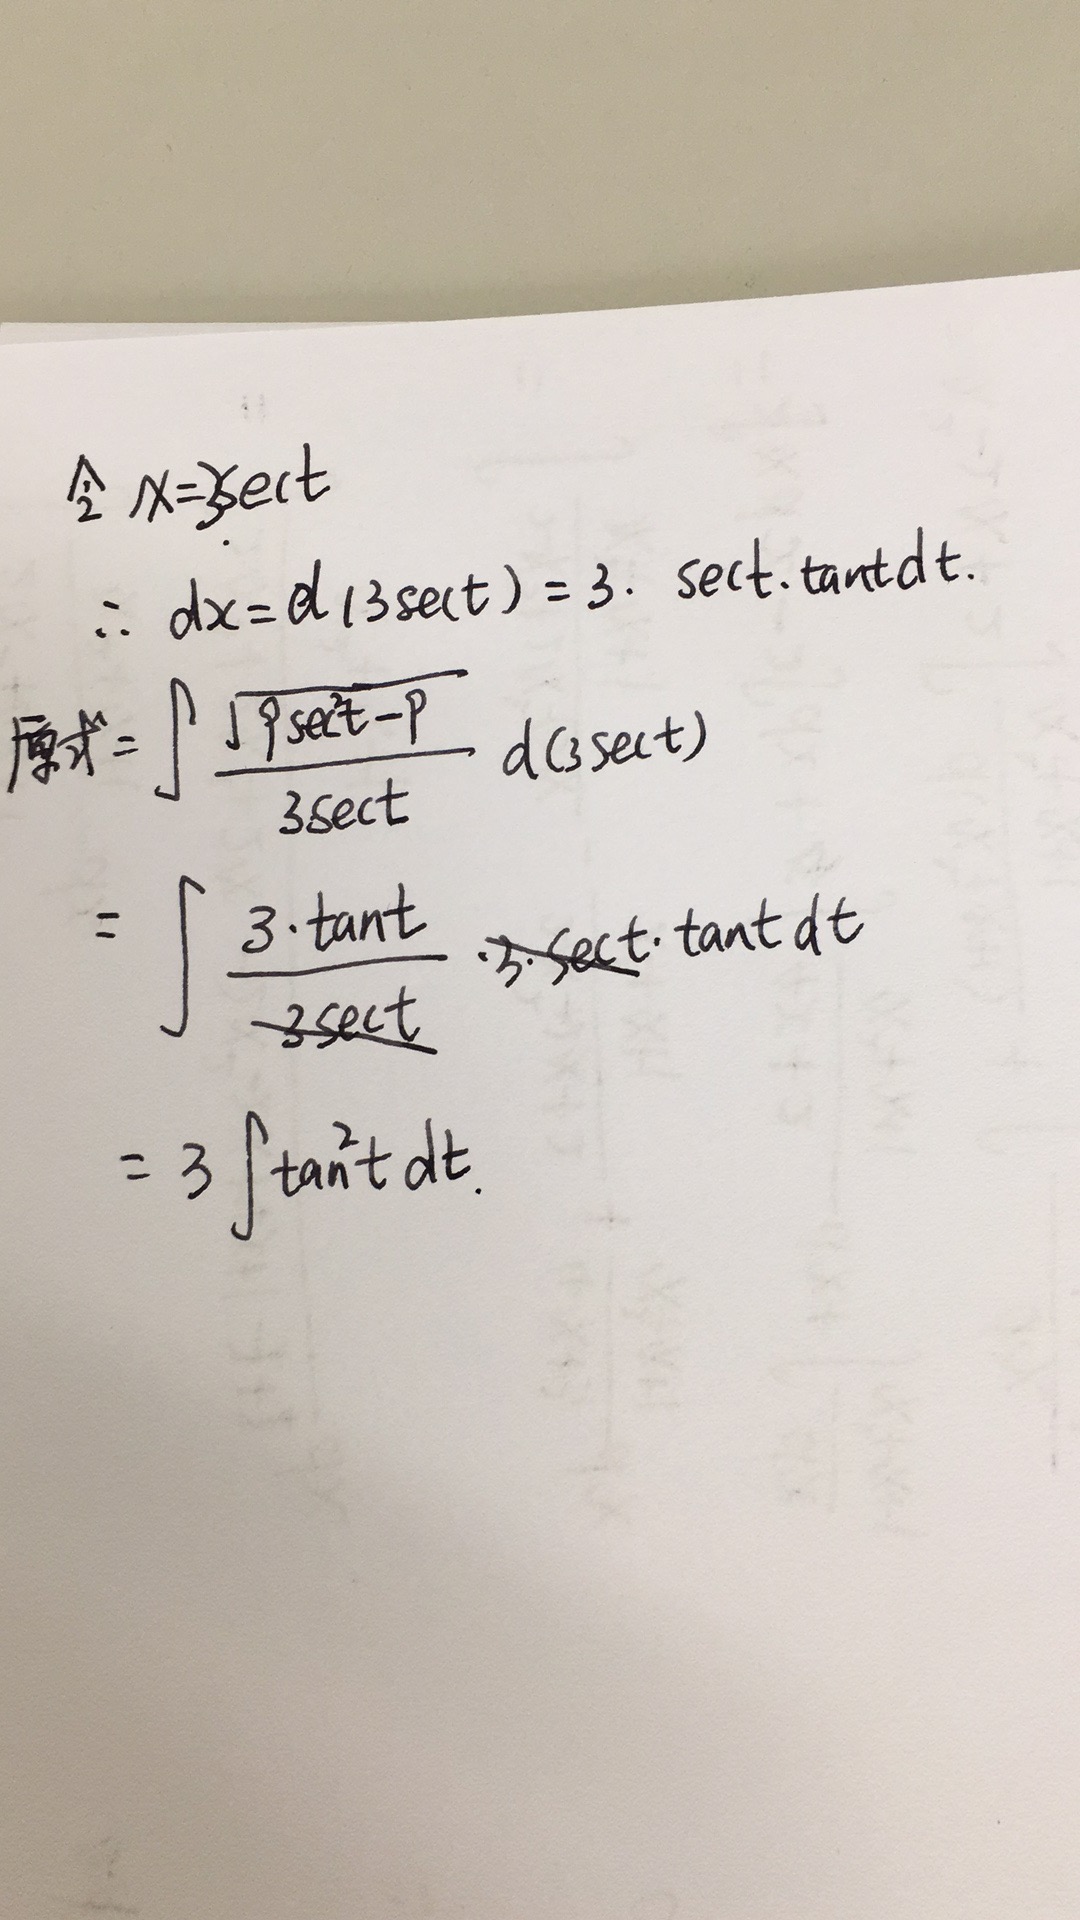 令 x=3sect
∴ dx=d(3sect)=3· sect·tantdt.
原式=∫ √(9sec²t-9) / 3sect d(3sect)
= ∫ 3·tant / 3sect ·3·sect·tantdt
= 3∫tan²tdt.